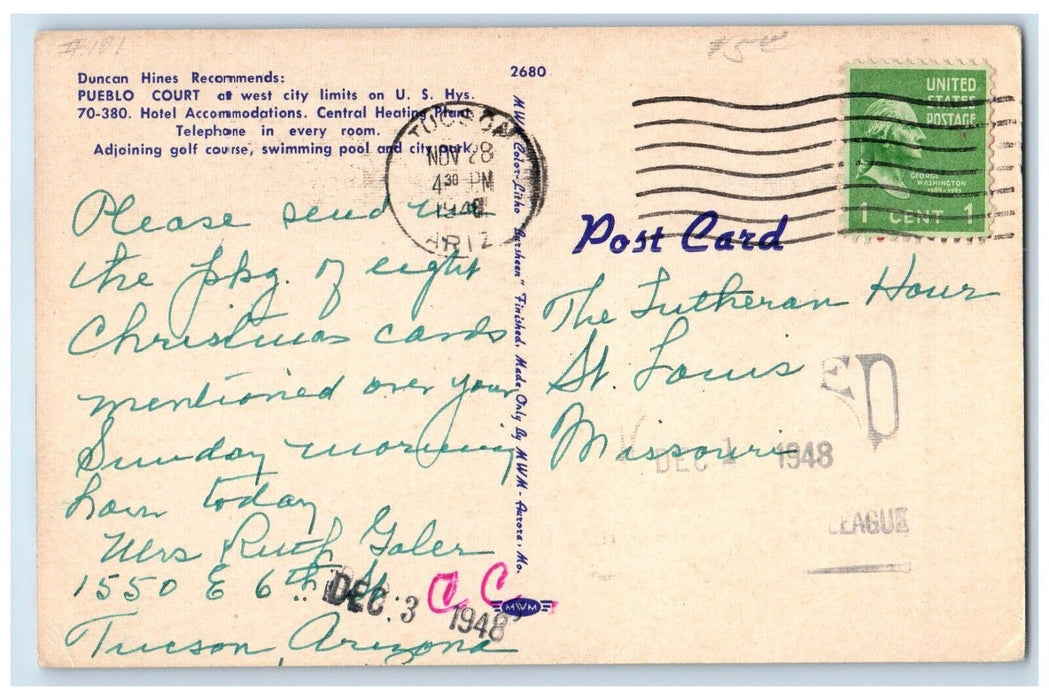 #101
Duncan Hines Recommends:
PUEBLO COURT at west city limits on U. S. Hys.
70-380. Hotel Accommodations. Central Heating Plant.
Telephone in every room.
Adjoining golf course, swimming pool and city park.
2680
TUCSON
NOV 28
4 30 PM
1948
ARIZ
UNITED
STATES
POSTAGE
GEORGE
WASHINGTON
1789-1797
1 CENT 1
MWM Color-Litho "Larsheen" Finished. Made Only By MWM - Aurora, Mo.
Post Card
Please send me
the pkg. of eight
Christmas cards
mentioned over your
Sunday morning
hour today
Mrs Ruth Galer
1550 E 6th St.
Tucson, Arizona
The Lutheran Hour
St. Louis
Missouri
ED
DEC 1 1948
LEAGUE
DEC. 3 1948
CC
MWM